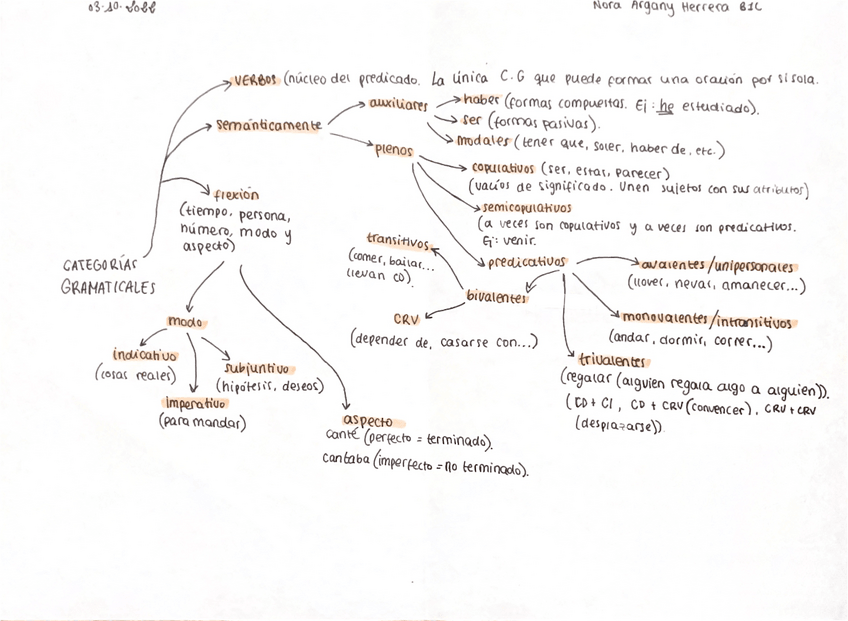 03-10-2022
Nora Argany Herrera B1C
VERBOS (núcleo del predicado. La única C.G que puede formar una oración por sí sola.
semánticamente
auxiliares
haber (formas compuestas. Ej: he estudiado).
ser (formas pasivas).
modales (tener que, soler, haber de, etc.)
plenos
copulativos (ser, estar, parecer)
(vacíos de significado. Unen sujetos con sus atributos)
semicopulativos
(a veces son copulativos y a veces son predicativos.
Ej: venir.
predicativos
avalentes/unipersonales
(llover, nevar, amanecer...)
monovalentes/intransitivos
(andar, dormir, correr...)
trivalentes
(regalar (alguien regala algo a alguien)).
(CD + CI, CD + CRV (convencer), CRV + CRV
(desplazarse)).
bivalentes
transitivos
(comer, bailar...
llevan CD).
CRV
(depender de, casarse con...)
flexión
(tiempo, persona,
número, modo y
aspecto)
CATEGORÍAS
GRAMATICALES
modo
indicativo
(cosas reales)
subjuntivo
(hipótesis, deseos)
imperativo
(para mandar)
aspecto
canté (perfecto = terminado).
cantaba (imperfecto = no terminado).